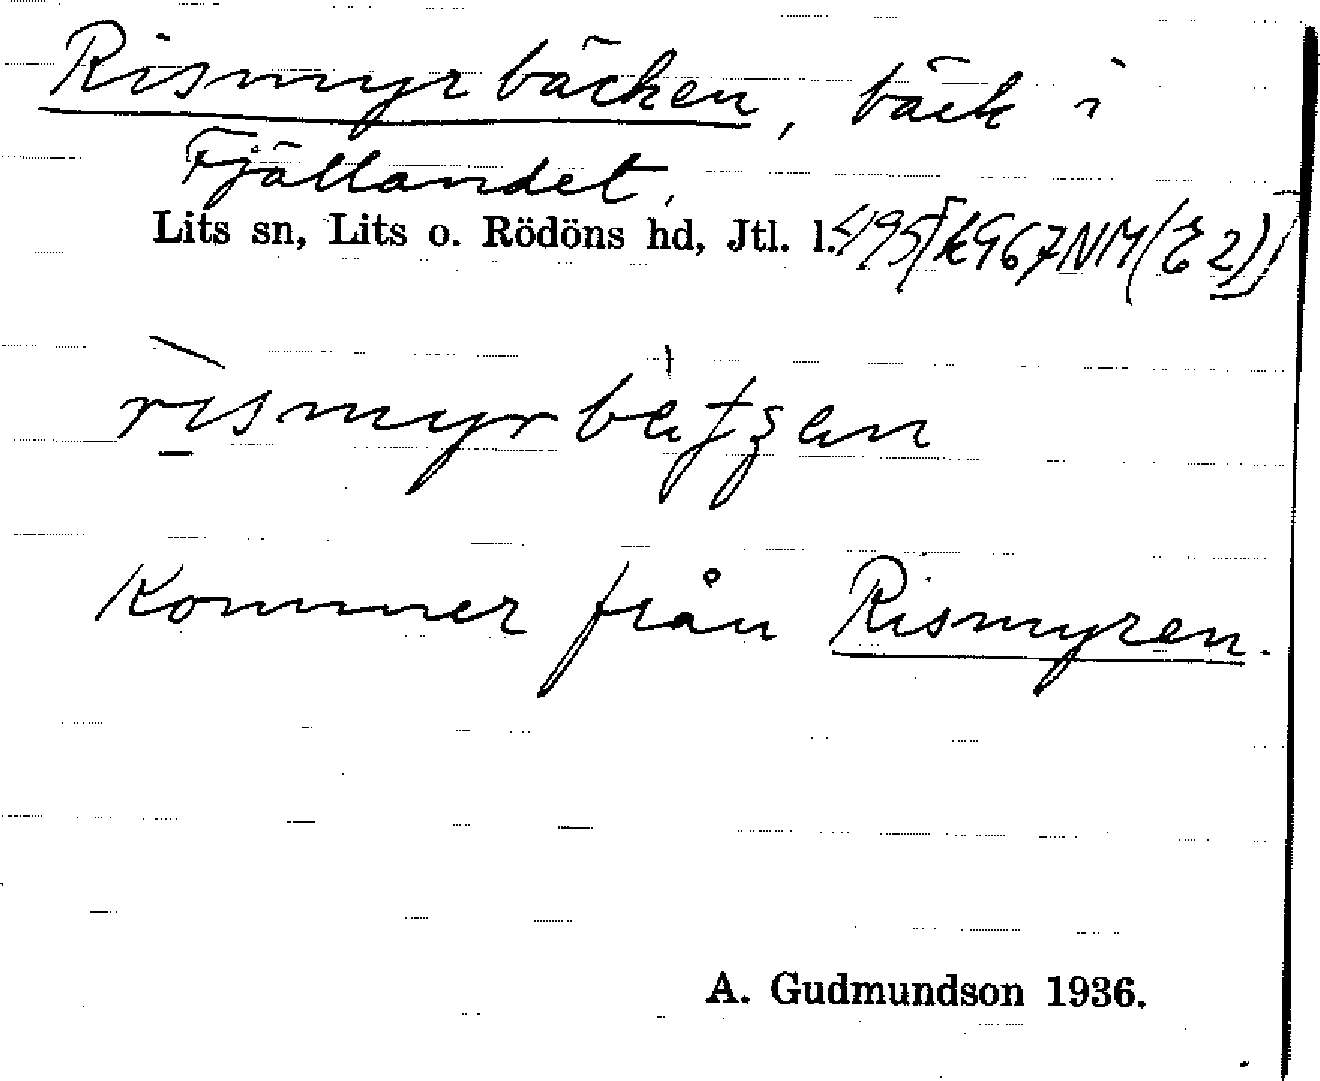 Rismyrbäcken, bäck i
Fjällandet.
Lits sn, Lits o. Rödöns hd, Jtl. l.
rismyr
Kommer från Rismyren.
A. Gudmundson 1936.